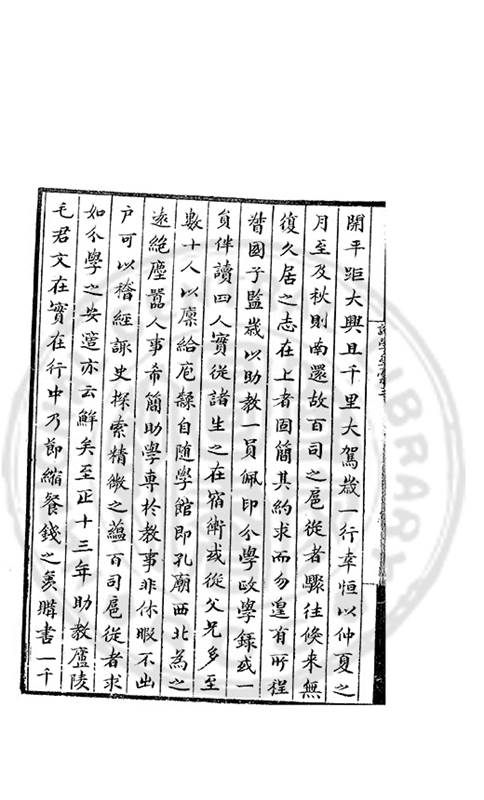 開平距大興且千里大駕歲一行幸恒以仲夏之
月至及秋則南還故百司之扈從者驟往倏來無
復久居之志在上者固簡其約求而勿遑有所程
督國子監歲以助教一員佩印分學政學錄或一
負伴讀四人實從諸生之在宿衛或從父兄多至
數十人以廩給庖隸自隨學館即孔廟西北為之
遠絶塵囂人事希簡助學專於教事非休暇不出
户可以禬經諏史探索精微之蘊百司扈從者求
如分學之安𨗿亦云鮮矣至正十三年助教廬陵
毛君文在實在行中乃節縮餐錢之羨購書一千
LIBRARY